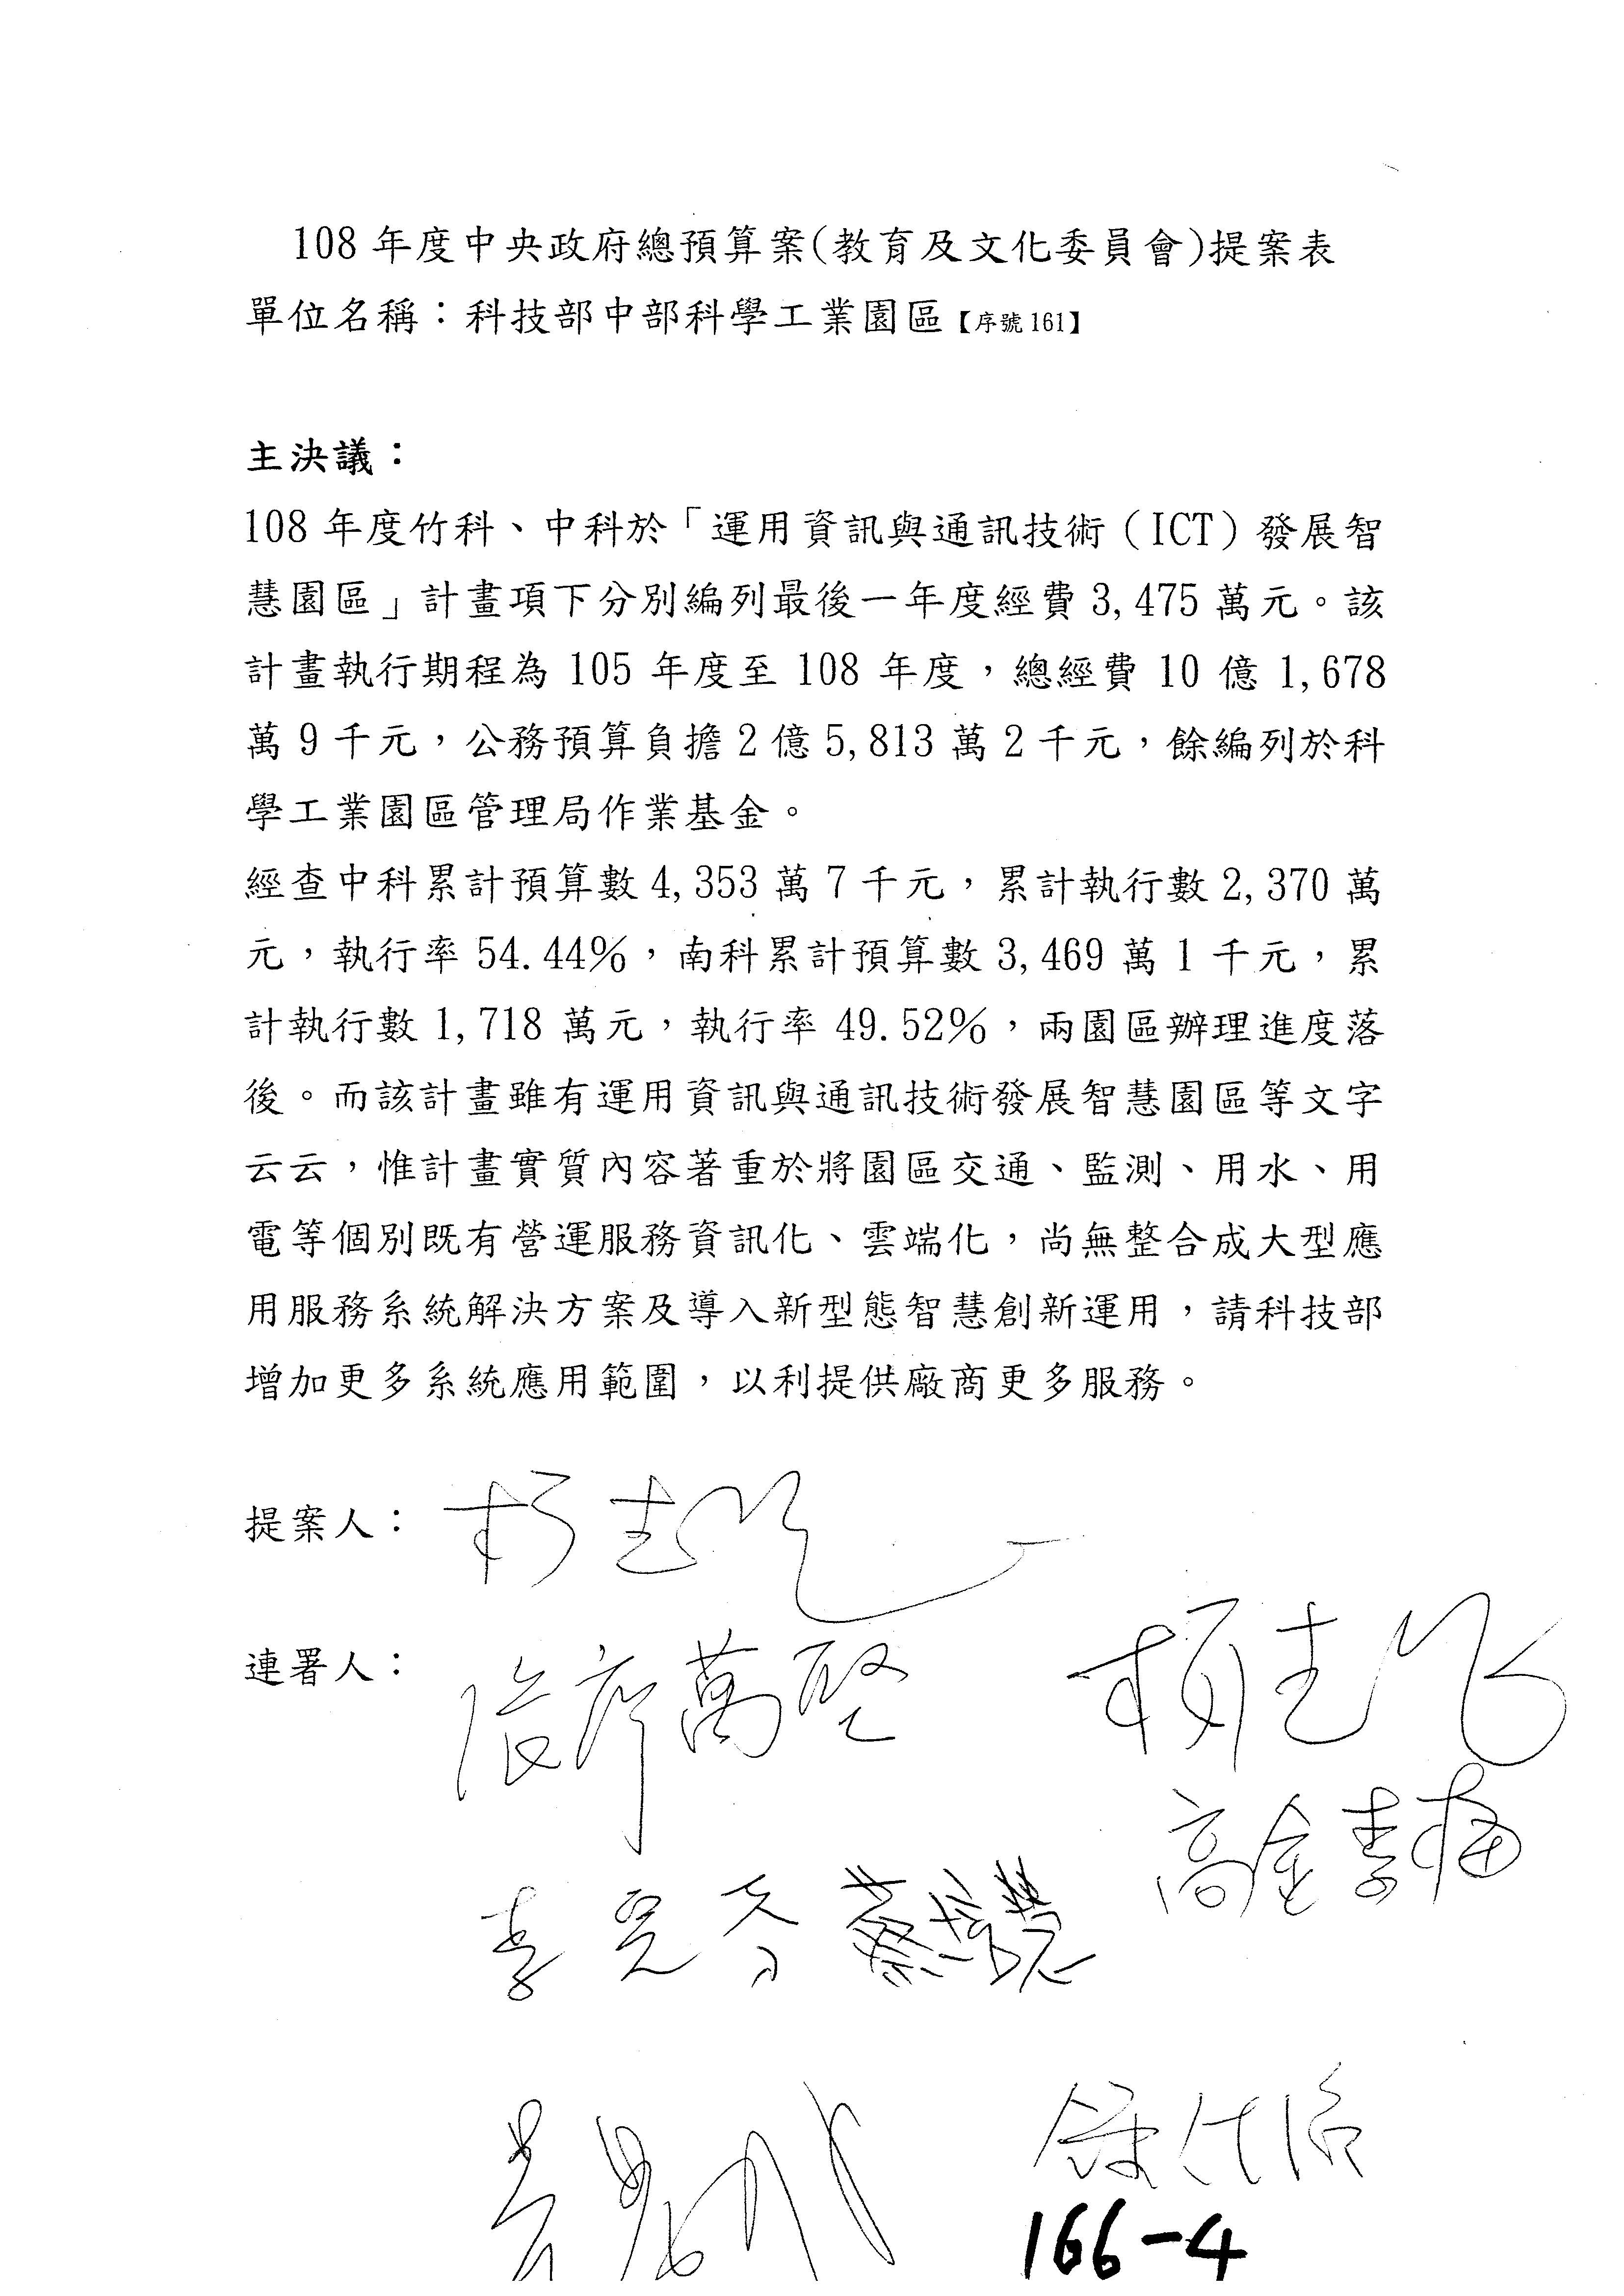 108 年度中央政府總預算案(教育及文化委員會)提案表
單位名稱：科技部中部科學工業園區【序號161】
主決議：
108 年度竹科、中科於「運用資訊與通訊技術（ICT）發展智
慧園區」計畫項下分別編列最後一年度經費 3,475 萬元。該
計畫執行期程為 105 年度至 108 年度，總經費 10 億 1,678
萬 9 千元，公務預算負擔 2 億 5,813 萬 2 千元，餘編列於科
學工業園區管理局作業基金。
經查中科累計預算數 4,353 萬 7 千元，累計執行數 2,370 萬
元，執行率 54.44%，南科累計預算數 3,469 萬 1 千元，累
計執行數 1,718 萬元，執行率 49.52%，兩園區辦理進度落
後。而該計畫雖有運用資訊與通訊技術發展智慧園區等文字
云云，惟計畫實質內容著重於將園區交通、監測、用水、用
電等個別既有營運服務資訊化、雲端化，尚無整合成大型應
用服務系統解決方案及導入新型態智慧創新運用，請科技部
增加更多系統應用範圍，以利提供廠商更多服務。
提案人：
連署人：
張廖萬堅
高金素梅
166-4